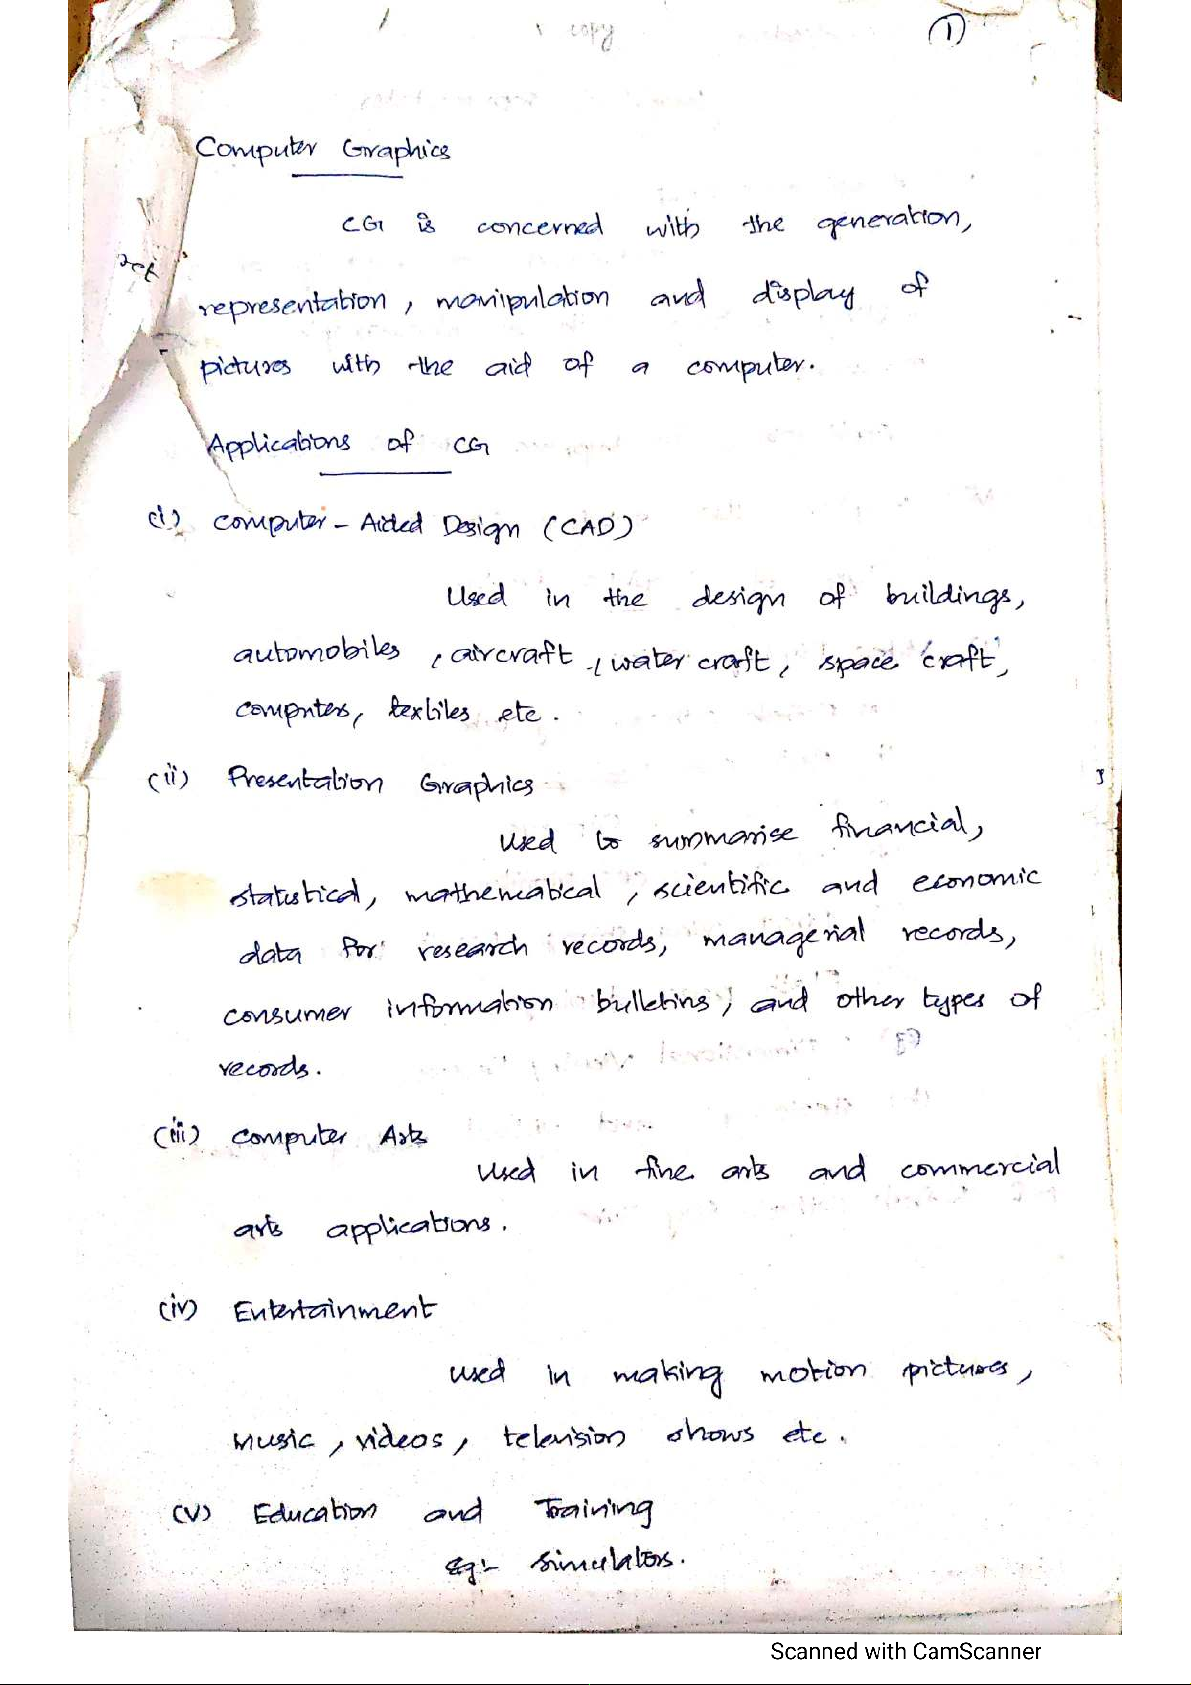 copy
1
Computer Graphics
CG is concerned with the generation,
representation, manipulation and display of
pictures with the aid of a computer.
Applications of CG
(i) Computer-Aided Design (CAD)
Used in the design of buildings,
automobiles, aircraft, water craft, space craft,
computers, textiles etc.
(ii) Presentation Graphics
Used to summarise financial,
statistical, mathematical, scientific and economic
data for research records, managerial records,
consumer information bulletins, and other types of
records.
(iii) Computer Arts
Used in fine arts and commercial
arts applications.
(iv) Entertainment
Used in making motion pictures,
music, videos, television shows etc.
(v) Education and Training
Eg:- Simulators.
Scanned with CamScanner